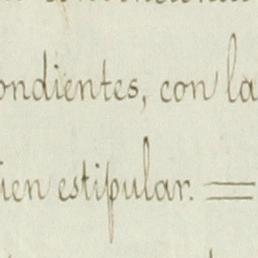 ondientes, con la
ien estipular. =